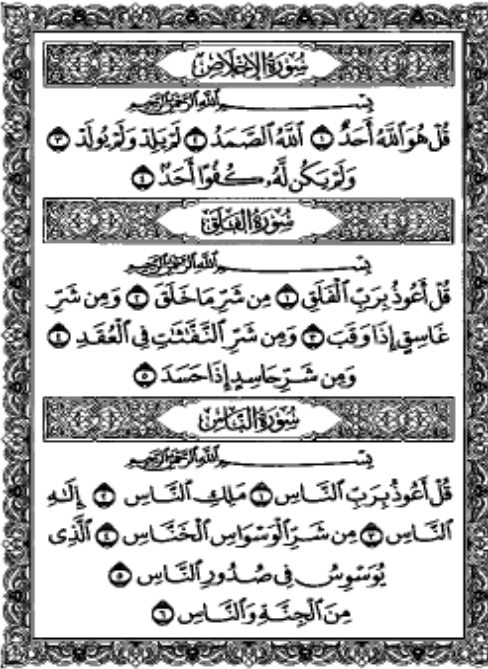 سُورَةُ الإِخْلَاصِ
بِسْمِ ٱللَّهِ ٱلرَّحْمَٰنِ ٱلرَّحِيمِ
قُلْ هُوَ ٱللَّهُ أَحَدٌ ١ ٱللَّهُ ٱلصَّمَدُ ٢ لَمْ يَلِدْ وَلَمْ يُولَدْ ٣
وَلَمْ يَكُن لَّهُۥ كُفُوًا أَحَدٌۢ ٤
سُورَةُ الْفَلَقِ
بِسْمِ ٱللَّهِ ٱلرَّحْمَٰنِ ٱلرَّحِيمِ
قُلْ أَعُوذُ بِرَبِّ ٱلْفَلَقِ ١ مِن شَرِّ مَا خَلَقَ ٢ وَمِن شَرِّ
غَاسِقٍ إِذَا وَقَبَ ٣ وَمِن شَرِّ ٱلنَّفَّٰثَٰتِ فِى ٱلْعُقَدِ ٤
وَمِن شَرِّ حَاسِدٍ إِذَا حَسَدَ ٥
سُورَةُ النَّاسِ
بِسْمِ ٱللَّهِ ٱلرَّحْمَٰنِ ٱلرَّحِيمِ
قُلْ أَعُوذُ بِرَبِّ ٱلنَّاسِ ١ مَلِكِ ٱلنَّاسِ ٢ إِلَٰهِ
ٱلنَّاسِ ٣ مِن شَرِّ ٱلْوَسْوَاسِ ٱلْخَنَّاسِ ٤ ٱلَّذِى
يُوَسْوِسُ فِى صُدُورِ ٱلنَّاسِ ٥
مِنَ ٱلْجِنَّةِ وَٱلنَّاسِ ٦